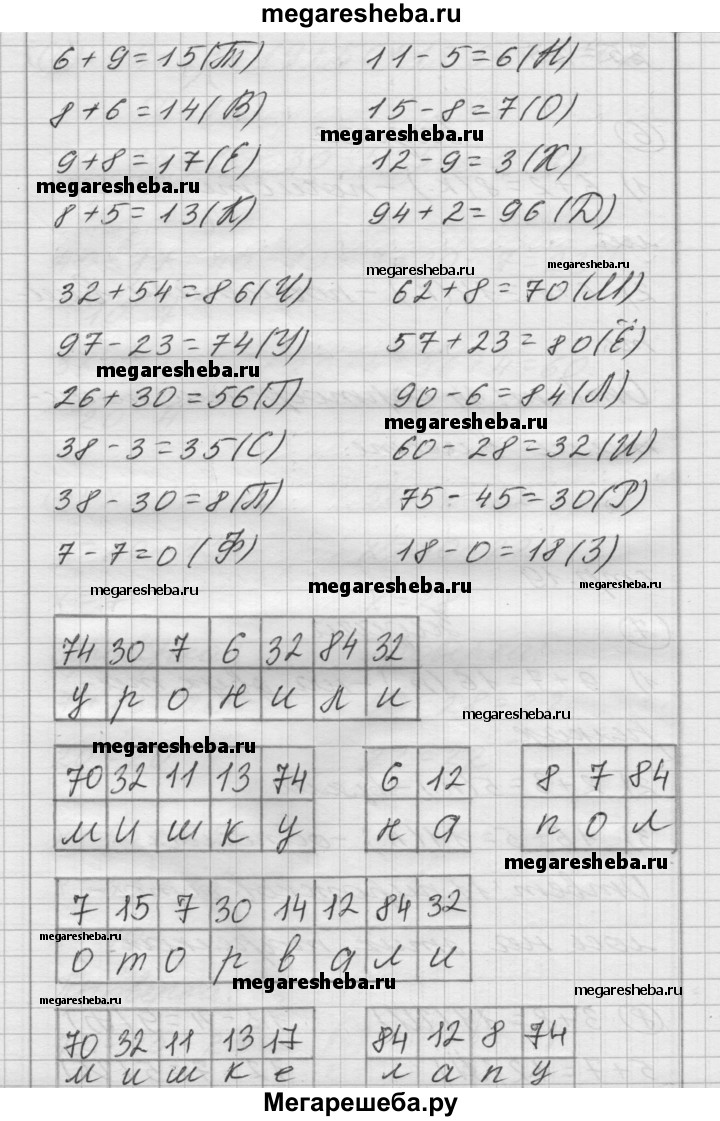 megaresheba.ru
6 + 9 = 15 (Т) 11 - 5 = 6 (Н)
8 + 6 = 14 (В) 15 - 8 = 7 (О)
megaresheba.ru
9 + 8 = 17 (Е) 12 - 9 = 3 (Х)
megaresheba.ru
8 + 5 = 13 (К) 94 + 2 = 96 (Д)
megaresheba.ru megaresheba.ru
32 + 54 = 86 (Ч) 62 + 8 = 70 (М)
97 - 23 = 74 (У) 57 + 23 = 80 (Ё)
megaresheba.ru
26 + 30 = 56 (Г) 90 - 6 = 84 (Л)
megaresheba.ru
38 - 3 = 35 (С) 60 - 28 = 32 (И)
38 - 30 = 8 (П) 75 - 45 = 30 (Р)
7 - 7 = 0 (Ф) 18 - 0 = 18 (З)
megaresheba.ru megaresheba.ru
74 30 7 6 32 84 32
у р о н и л и
megaresheba.ru
megaresheba.ru
70 32 11 13 74 6 12 8 7 84
м и ш к у н а п о л
megaresheba.ru
7 15 7 30 14 12 84 32
megaresheba.ru
о т о р в а л и
megaresheba.ru
megaresheba.ru
megaresheba.ru
70 32 11 13 17 84 12 8 74
м и ш к е л а п у
Мегарешеба.ру